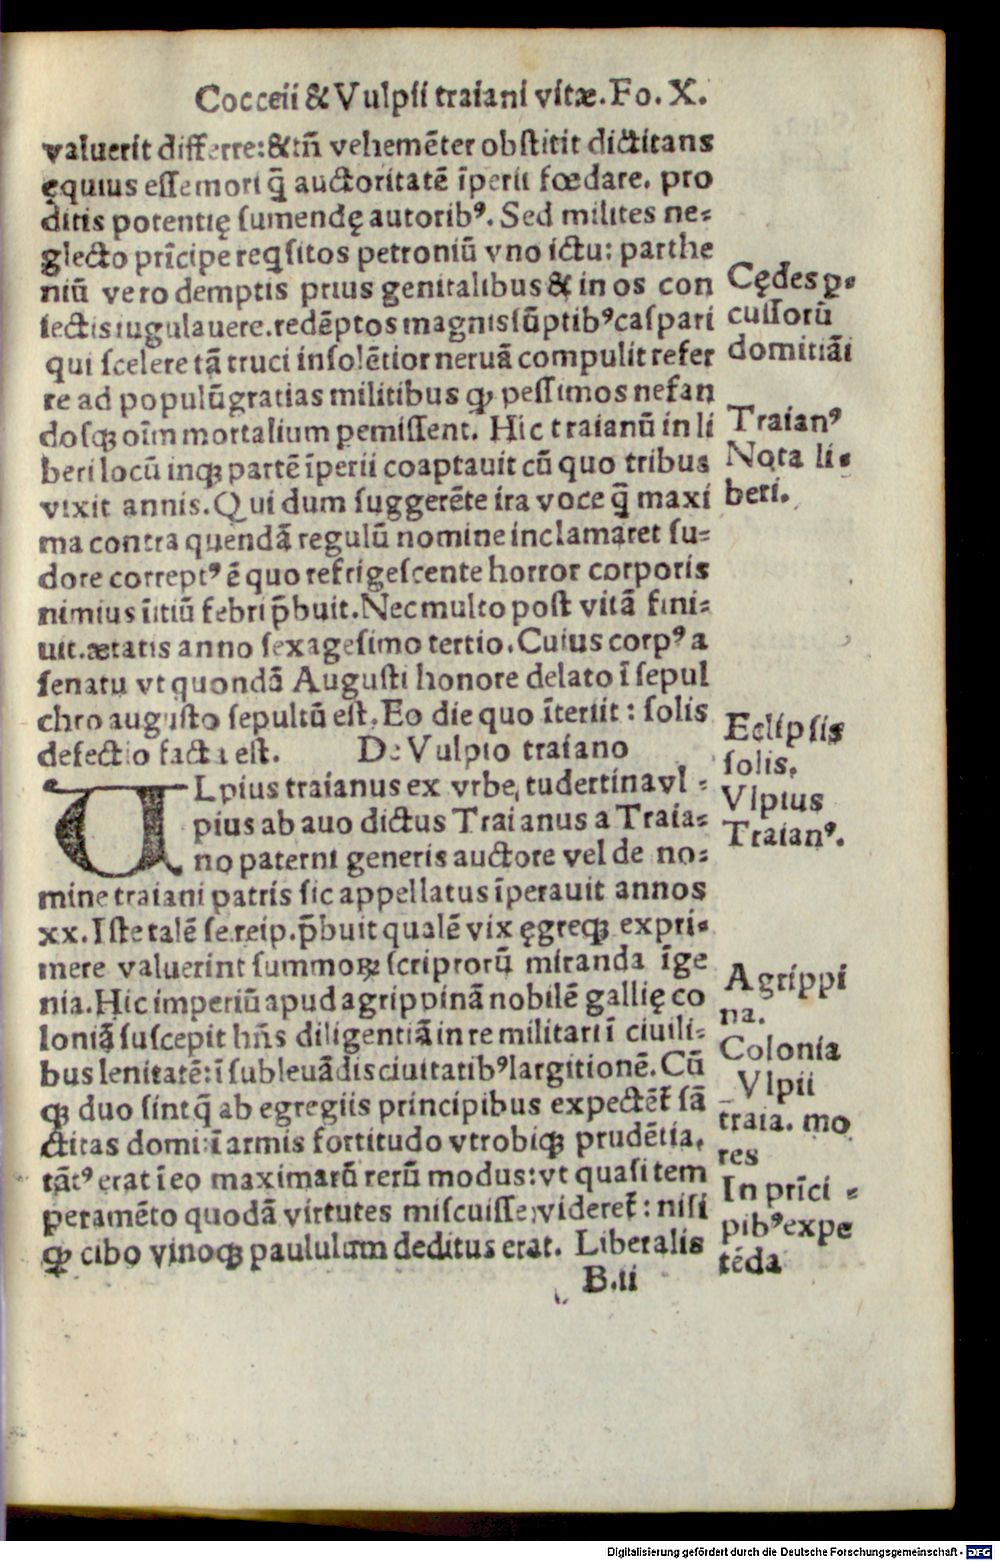 Cocceii & Vulpii traiani vitæ. Fo. X.
valuerit differre: & tñ vehemẽter obstitit dictitans
ęquius esse mori q̃ auctoritatẽ ĩperii fœdare. pro
ditis potentię sumendę autoribꝰ. Sed milites ne=
glecto prĩcipe reqsitos petroniũ vno ictu: parthe
niũ vero demptis prius genitalibus & in os con
iectis iugulauere. redẽptos magnis sũptibꝰ caspari
qui scelere tã truci insolẽtior neruã compulit refer
re ad populũ gratias militibus ꝙ pessimos nefan
dosqꝫ oĩm mortalium pemissent. Hic traianũ in li
beri locũ inqꝫ partẽ ĩperii coaptauit cũ quo tribus
vixit annis. Qui dum suggerẽte ira voce q̃ maxi
ma contra quendã regulũ nomine inclamaret su=
dore correptꝰ ẽ quo refrigescente horror corporis
nimius ĩitiũ febri p̃buit. Nec multo post vitã fini=
uit. ætatis anno sexagesimo tertio. Cuius corpꝰ a
senatu vt quondã Augusti honore delato ĩ sepul
chro augusto sepultũ est. Eo die quo ĩteriit: solis
defectio facta est. De Vulpio traiano
ULpius traianus ex vrbe tudertina vl=
pius ab auo dictus Traianus a Traia=
no paterni generis auctore vel de no=
mine traiani patris sic appellatus ĩperauit annos
xx. Iste talẽ se reip. p̃buit qualẽ vix ęgreqꝫ expri=
mere valuerint summoꝝ scriptorũ miranda ĩge
nia. Hic imperiũ apud agrippinã nobilẽ gallię co
loniã suscepit hñs diligentiã in re militari ĩ ciuili=
bus lenitatẽ: ĩ subleuãdis ciuitatibꝰ largitionẽ. Cũ
qꝫ duo sint q̃ ab egregiis principibus expectẽt̃ sã
ctitas domi: ĩ armis fortitudo vtrobiqꝫ prudẽtia.
tãtꝰ erat ĩ eo maximarũ rerũ modus: vt quasi tem
peramẽto quodã virtutes miscuisse videret̃: nisi
ꝙ cibo vinoqꝫ paululum deditus erat. Liberalis
B.ii
Cędes p=
cussorũ
domitiãi
Traianꝰ
Nota li=
beri.
Eclipsis
solis.
Vlpius
Traianꝰ.
Agrippi
na.
Colonia
Vlpii
traia. mo
res
In prĩci=
pibꝰ expe
tẽda
Digitalisierung gefördert durch die Deutsche Forschungsgemeinschaft - DFG